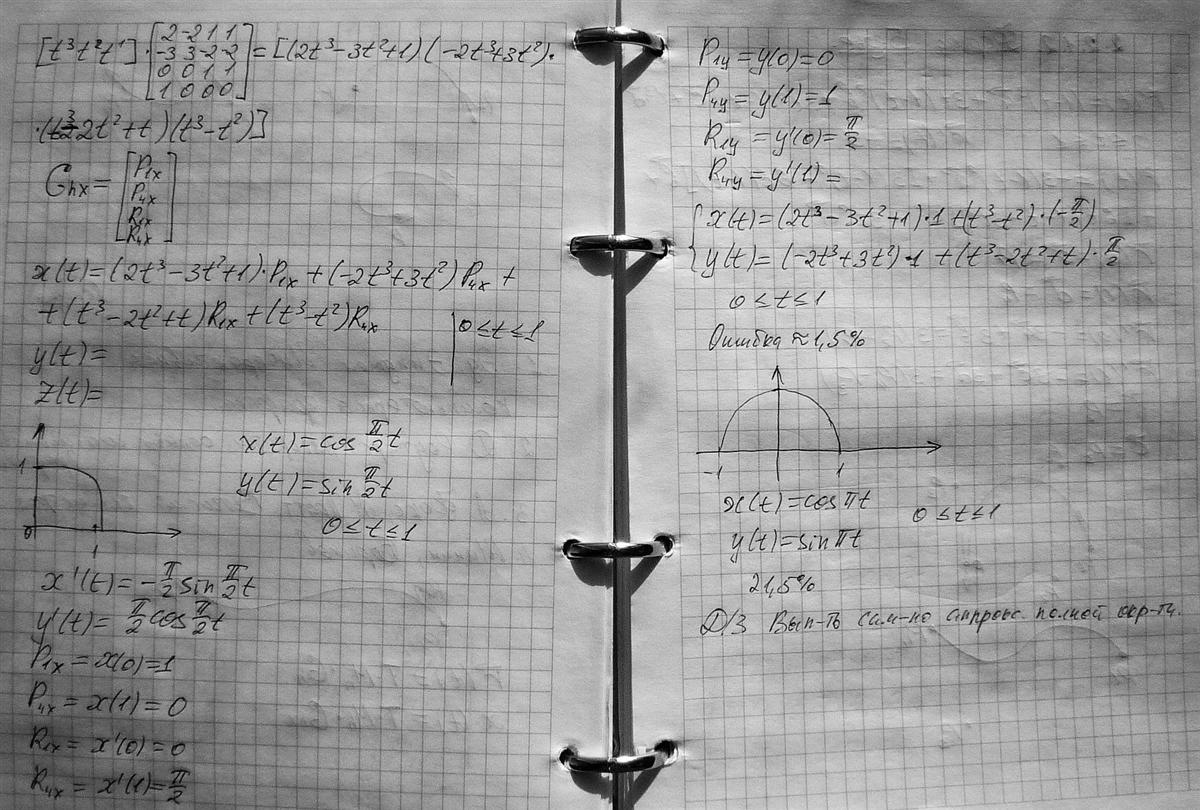 [t³ t² t¹] · [2 -2 1 1
-3 3 -2 -2
0 0 1 1
1 0 0 0] = [(2t³-3t²+1) (-2t³+3t²) ·
·(t³-2t²+t)(t³-t²)]
Gₕₓ = [P₁ₓ
P₄ₓ
R₁ₓ
R₄ₓ]
x(t) = (2t³-3t²+1)·P₁ₓ + (-2t³+3t²) P₄ₓ +
+ (t³-2t²+t) R₁ₓ + (t³-t²) R₄ₓ | 0≤t≤1
y(t) =
z(t) =
1
0
1
x(t) = cos π/2 t
y(t) = sin π/2 t
0≤t≤1
x'(t) = -π/2 sin π/2 t
y'(t) = π/2 cos π/2 t
P₁ₓ = x(0) = 1
P₄ₓ = x(1) = 0
R₁ₓ = x'(0) = 0
R₄ₓ = x'(1) = π/2
P₁y = y(0) = 0
P₄y = y(1) = 1
R₁y = y'(0) = π/2
R₄y = y'(1) =
{ x(t) = (2t³-3t²+1)·1 + (t³-t²)·(-π/2)
y(t) = (-2t³+3t²)·1 + (t³-2t²+t)·π/2
0≤t≤1
Ошибка ≈ 1,5%
-1 1
x(t) = cos πt
y(t) = sin πt
0≤t≤1
21,5%
Д/З Вып-ть сам-но аппрокс. полной окр-ти.